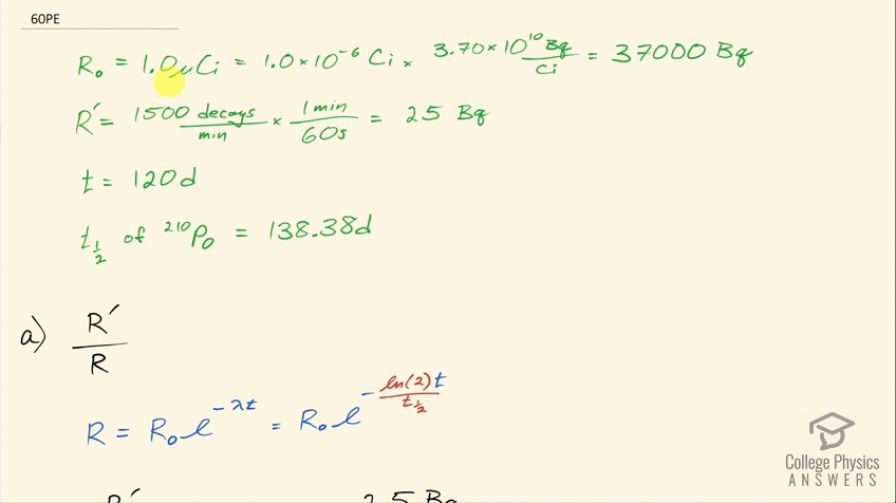 60PE
R₀ = 1.0 μCi = 1.0 × 10⁻⁶ Ci × 3.70 × 10¹⁰ Bq / Ci = 37000 Bq
R′ = 1500 decays / min × 1 min / 60s = 25 Bq
t = 120d
t½ of ²¹⁰Po = 138.38d
a) R′ / R
R = R₀e^(-λt) = R₀e^(-ln(2)t / t½)
College Physics
ANSWERS